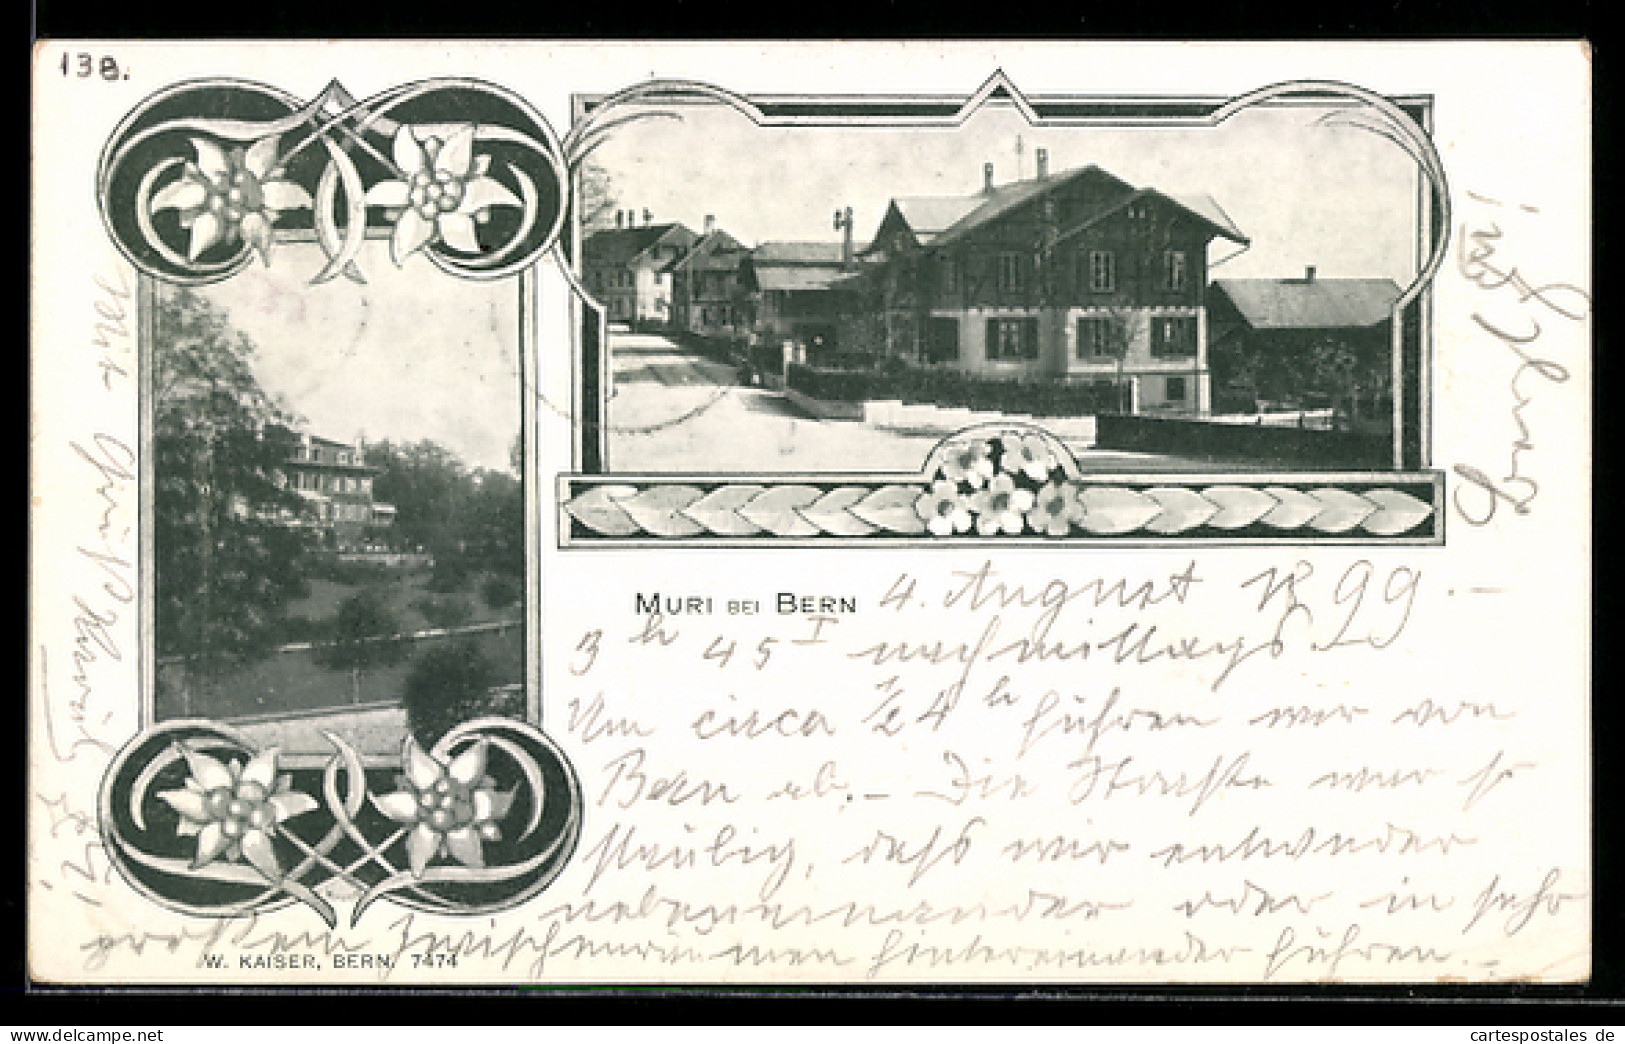 138.
MURI BEI BERN 4. August 1899.-
3h 45I nachmittags.
Um circa 1/2 4h fuhren wir von
Bern ab. - Die Strasse war so
staubig, dass wir entweder
nebeneinander oder in sehr
großem Zwischenräumen hintereinander fuhren. -
W. KAISER, BERN. 7474
Gruß
cartespostales de